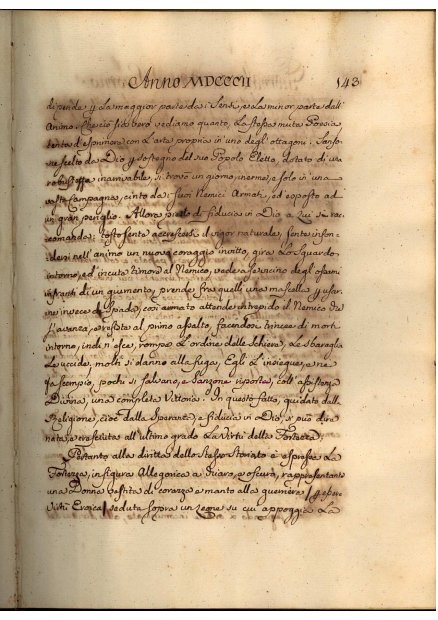 Anno MDCCCII 143
dipende p. la maggior parte da i Sensi, e la minor parte dall'
Animo. E perciò sia vero vediamo quanto, la stessa muta Poesia
tenta d'esprimere con l'arte propria in uno degl'ottagoni. Sanso-
ne scelto da Dio p. sostegno del suo Popolo Eletto, dotato di una
robustezza inarrivabile, si trovò un giorno, inerme, e solo in una
vasta Campagna, cinto da suoi Nemici Armati, ed esposto ad
un gran periglio. Allora pieno di fiducia in Dio a Lui si rac-
comanda: tosto sente accrescersi il vigor naturale, sente infon-
dersi nell'animo un nuovo coraggio invitto, gira lo Sguardo
intorno, ed incute timore al Nemico, vede a se vicino degl'ossami
infranti di un giumento, prende fra quelli una mascella p. usar-
ne invece di Spada; così armato attende intrepido il Nemico che
s'avanza, e resiste al primo assalto, facendosi trincee di morti
intorno, indi n'esce, rompe l'ordine delle Schiere, le sbaraglia
le uccide, molti si danno alla fuga, Egli l'insiegue, e ne
fa scempio, pochi si salvano, e Sansone riporta, coll'assistenza
Divina, una completa Vittoria. In questo fatto, guidato dalla
Religione, cioè dalla Speranza, e fiducia in Dio, si può dire
nata, e cresciuta all'ultimo grado la Virtù della Fortezza.
Pertanto alla diritta dello Stesso Storiato è espressa La
Fortezza, in figura Allegorica a chiaro, e oscuro, rappresentante
una Donna vestita di corazza e manto alla guerriera / p. essere
Virtù Eroica / seduta sopra un Leone su cui appoggia La